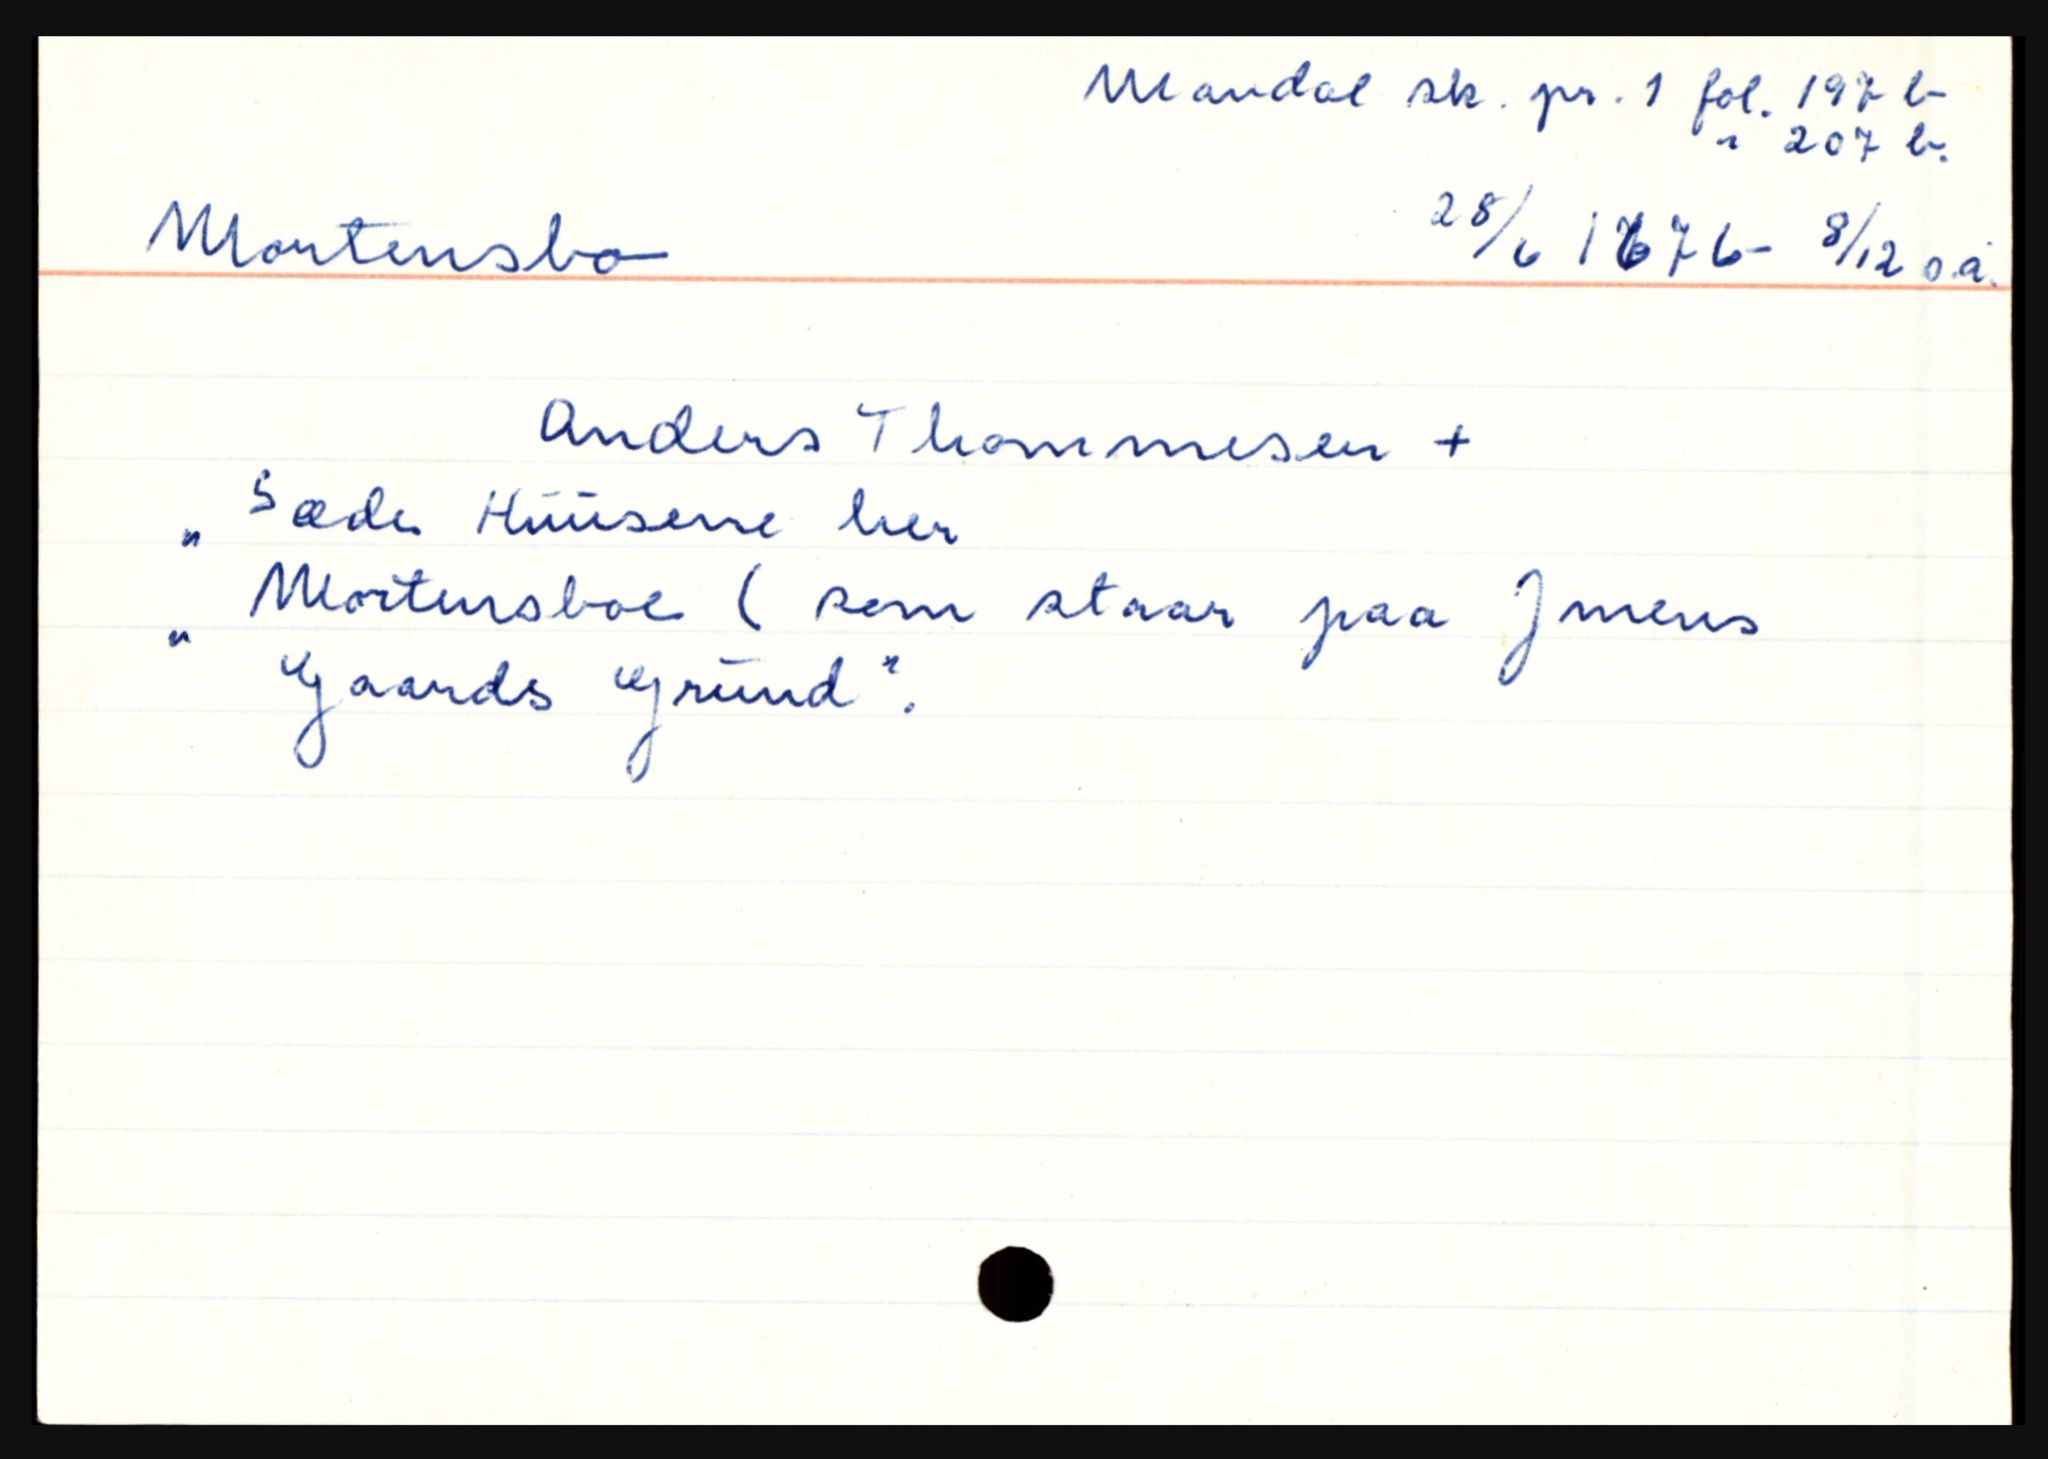 Mandal sk. pr. 1 fol. 197 b
" 207 b.
Mortensbo 28/6 1676 - 8/12 s.å.
Anders Thommesen +
„ Sæde Hüüsene her
„ Mortensboe ( som staar paa Jmens
Gaards Gründ".